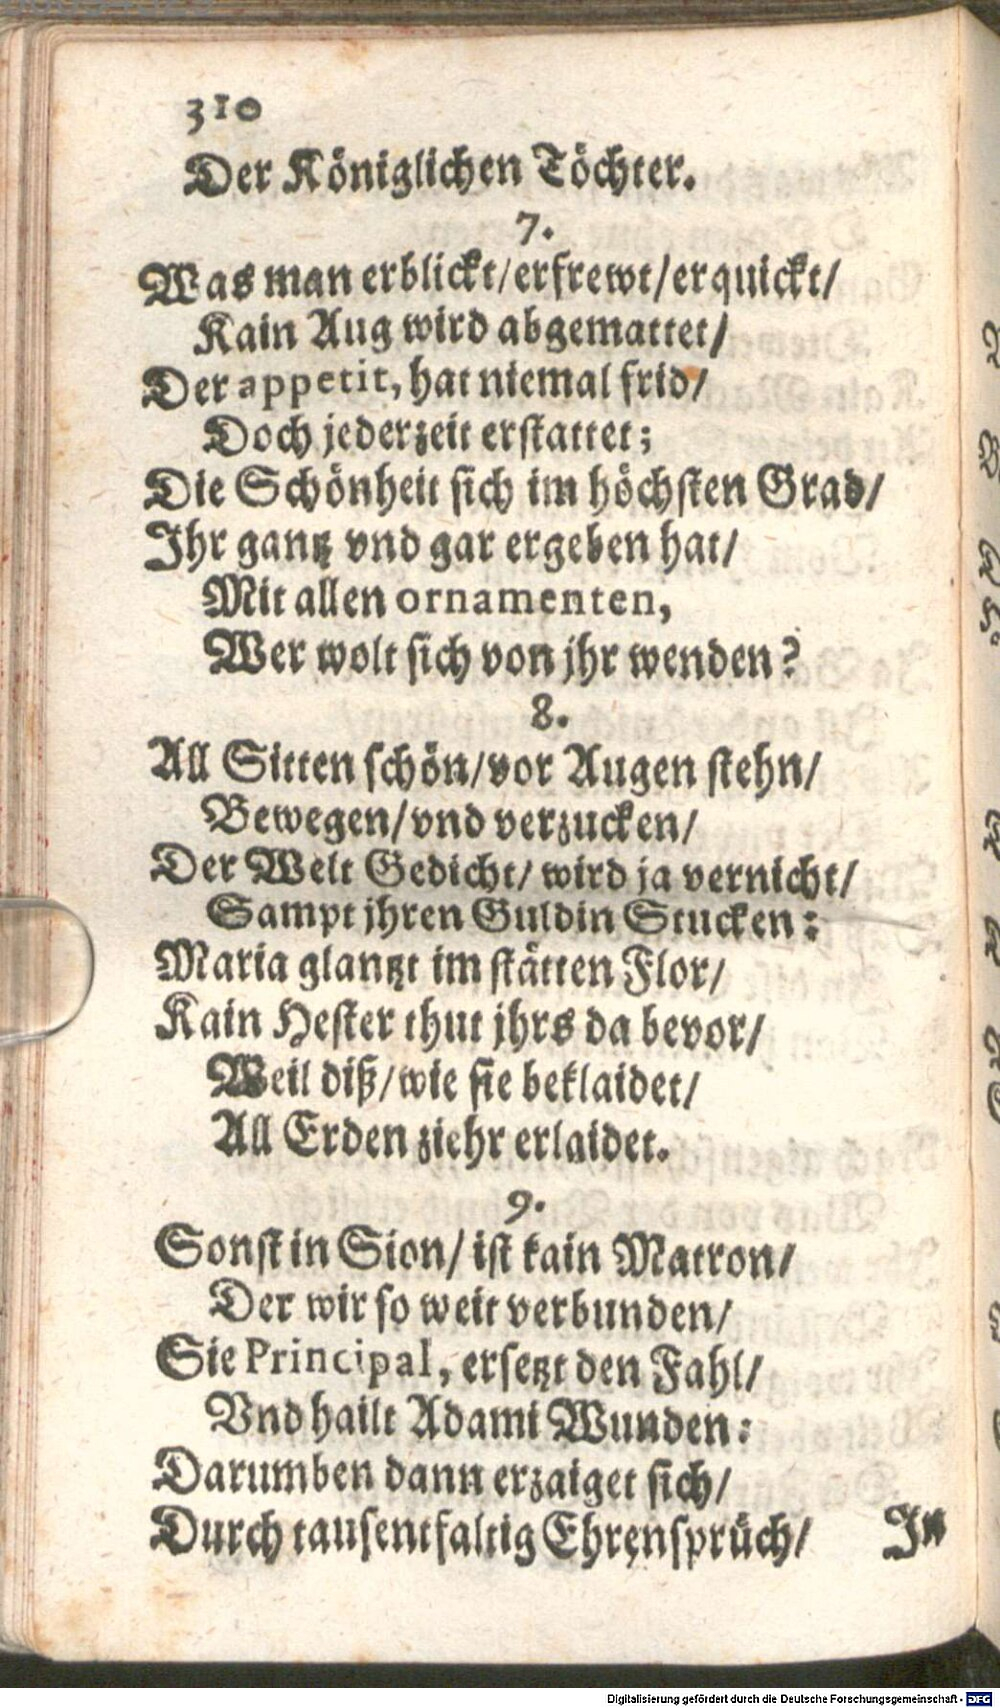 310
Der Königlichen Töchter.
7.
Was man erblickt/erfrewt/erquickt/
Kain Aug wird abgemattet/
Der appetit, hat niemal frid/
Doch jederzeit erstattet;
Die Schönheit sich im höchsten Grad/
Ihr gantz vnd gar ergeben hat/
Mit allen ornamenten,
Wer wolt sich von jhr wenden?
8.
All Sitten schön/vor Augen stehn/
Bewegen/vnd verzucken/
Der Welt Gedicht/wird ja vernicht/
Sampt jhren Guldin Stucken:
Maria glantzt im stätten Flor/
Kain Hester thut jhrs da bevor/
Weil diß/wie sie beklaidet/
All Erden ziehr erlaidet.
9.
Sonst in Sion/ist kain Matron/
Der wir so weit verbunden/
Sie Principal, ersetzt den Fahl/
Vnd hailt Adami Wunden:
Darumben dann erzaiget sich/
Durch tausentfaltig Ehrensprüch/
In
Digitalisierung gefördert durch die Deutsche Forschungsgemeinschaft - DFG